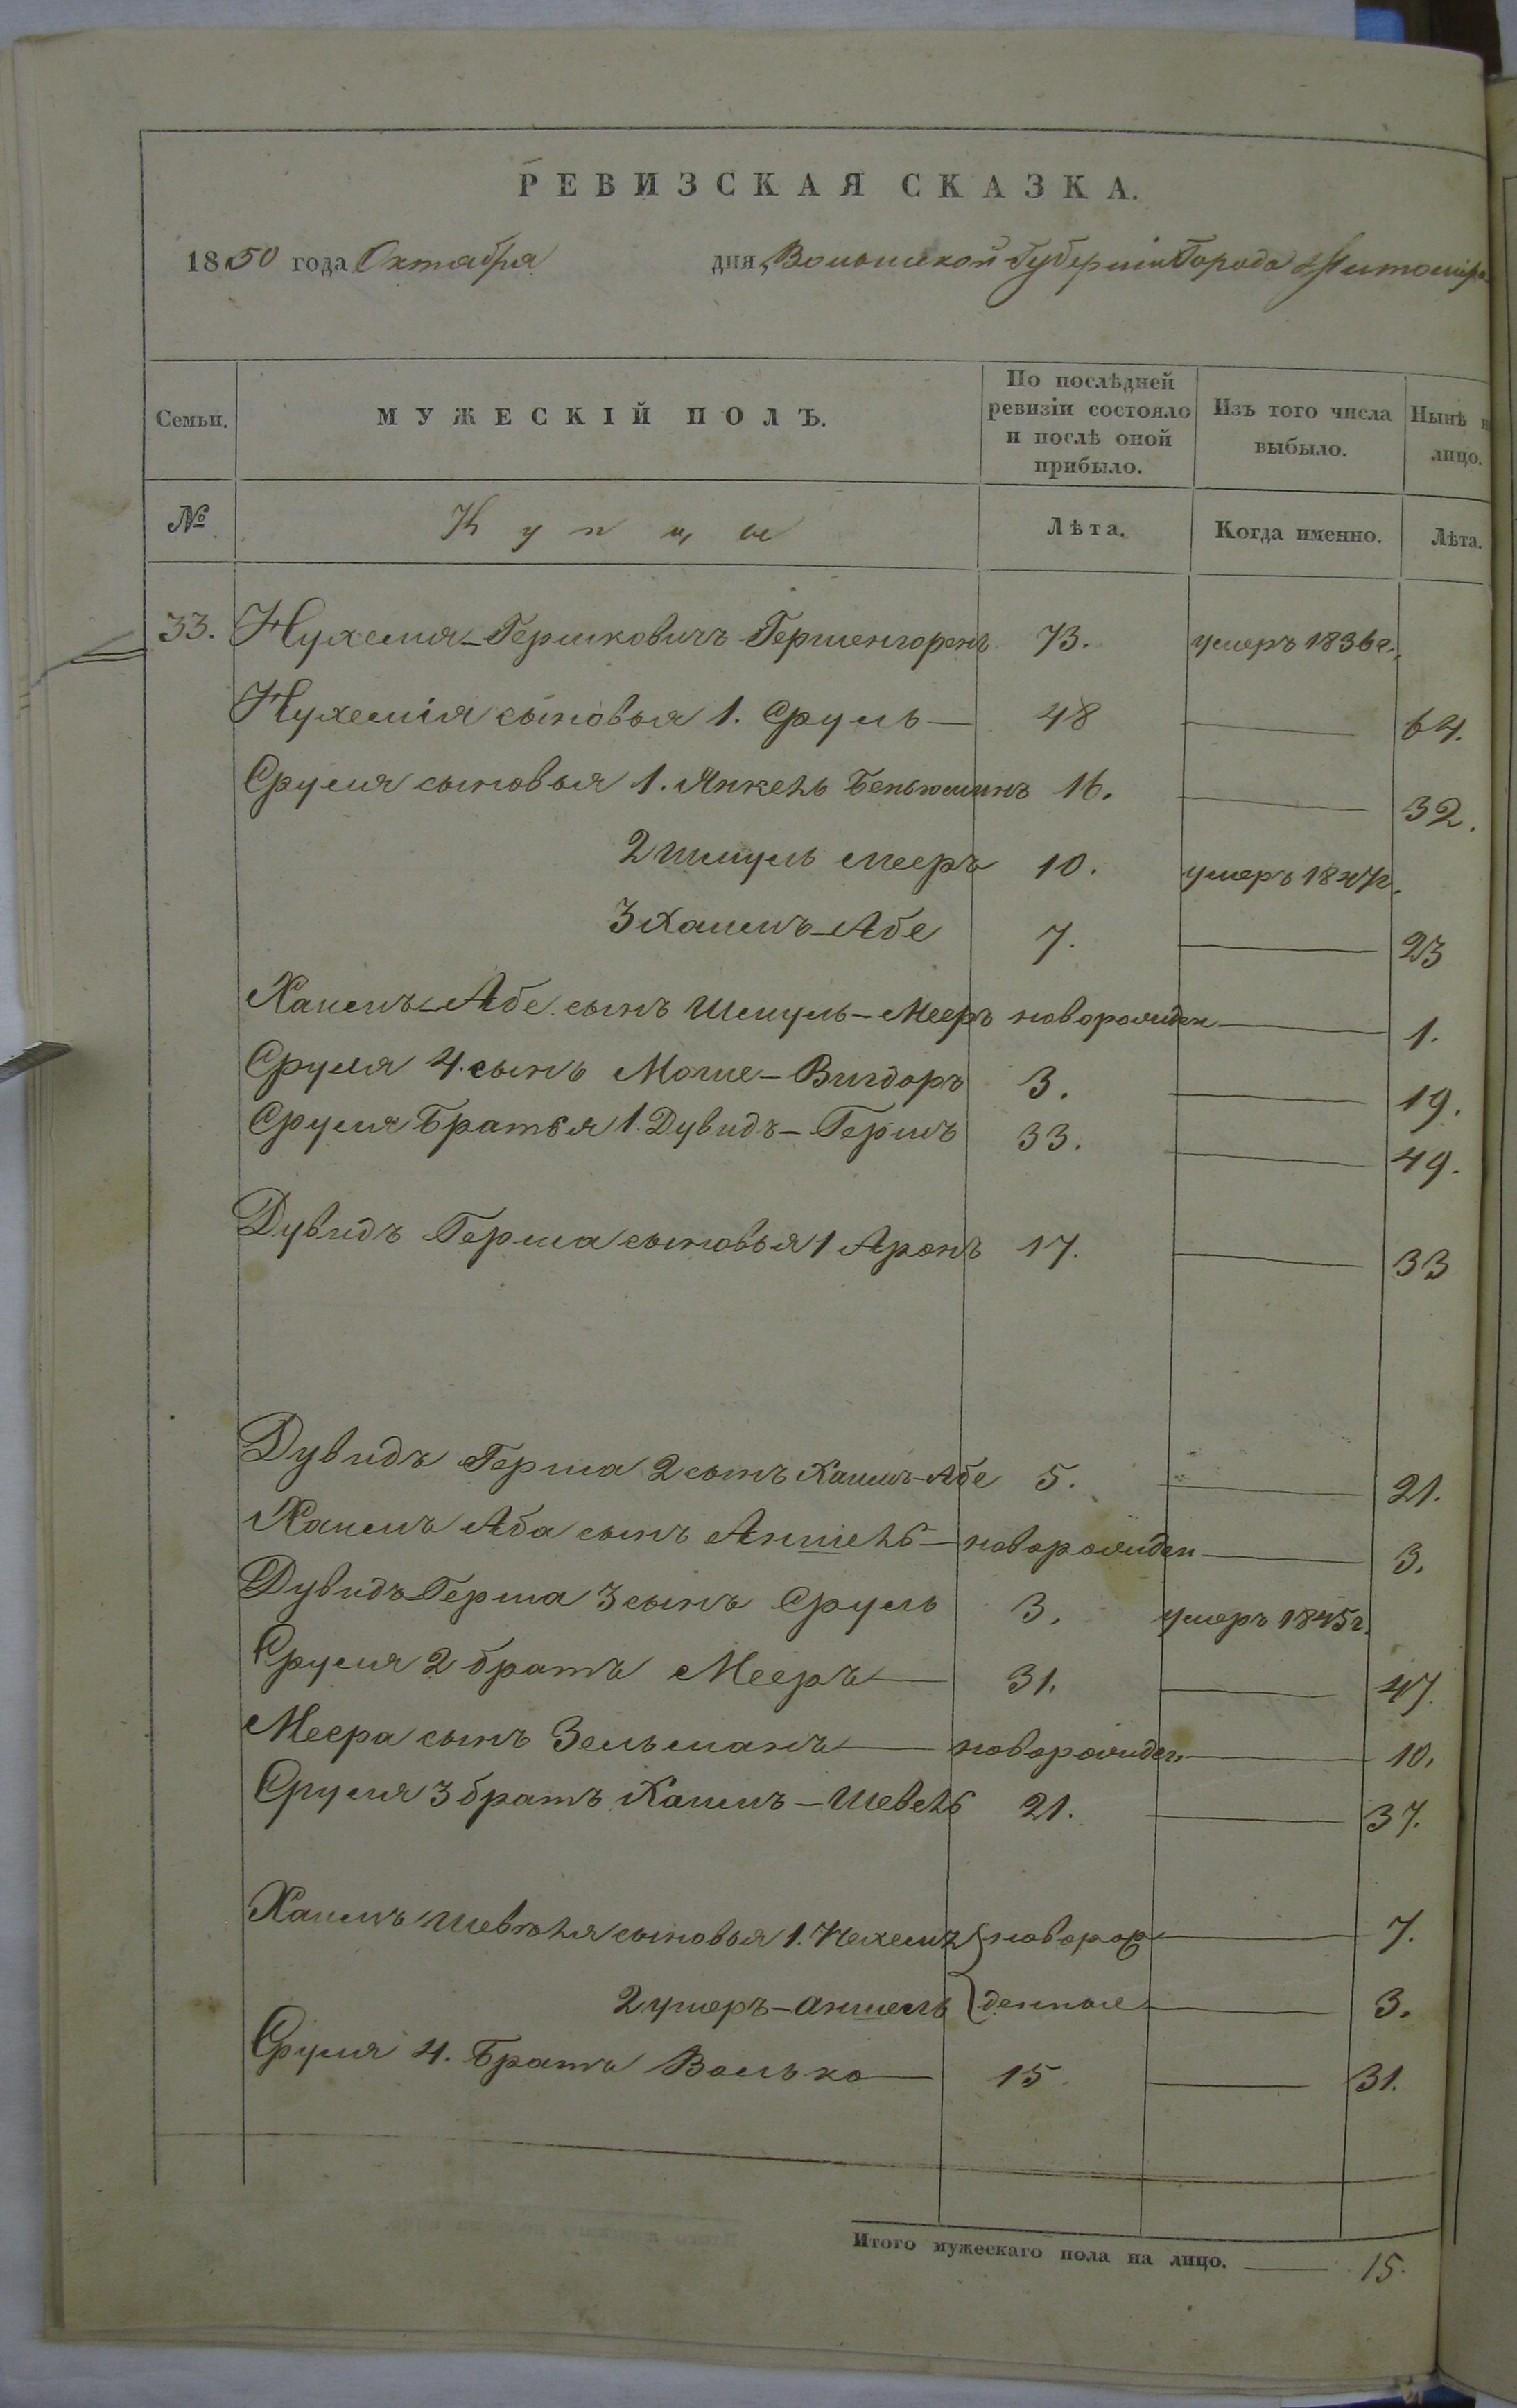 РЕВИЗСКАЯ СКАЗКА.
1850 года Октабря дня, Волынской Губерніи Города Житоміра
Семьи. МУЖЕСКІЙ ПОЛЪ. По послѣдней ревизіи состояло и послѣ оной прибыло. Изъ того числа выбыло. Нынѣ н лицо.
№ Купцы Лѣта. Когда именно. Лѣта.
33. Нухемія-Гершковичъ Гершенгоренъ 73. умеръ 1836 г.
Нухемія сыновья 1. Сруль — 48 — 64.
Сруля сыновья 1. Янкель Беньюминъ 16. — 32.
2 Шмуль Мееръ 10. умеръ 1847 г.
3 Хаимъ-Абе 7. — 23
Хаимъ-Абе сынъ Шмуль-Мееръ новорожден — 1.
Сруля 4. сынъ Моше-Вигдоръ 3. — 19.
Сруля Братья 1. Дувидъ-Гершъ 33. — 49.
Дувидъ Герша сыновья 1 Аронъ 17. — 33
Дувидъ Герша 2 сынъ Хаимъ-Абе 5. — 21.
Хаимъ Аба сынъ Аншель — новорожден — 3.
Дувидъ-Герша 3 сынъ Сруль 3. умеръ 1845 г.
Сруля 2 братъ Мееръ — 31. — 47.
Меера сынъ Зельманъ — новорожден — 10.
Сруля 3 братъ Хаимъ-Шевель 21. — 37.
Хаимъ Шевеля сыновья 1. Нехемъ } новорож — 7.
2 ушеръ-аншель } денные — 3.
Сруля 4. Братъ Волько — 15 — 31.
Итого мужескаго пола на лицо. — 15.